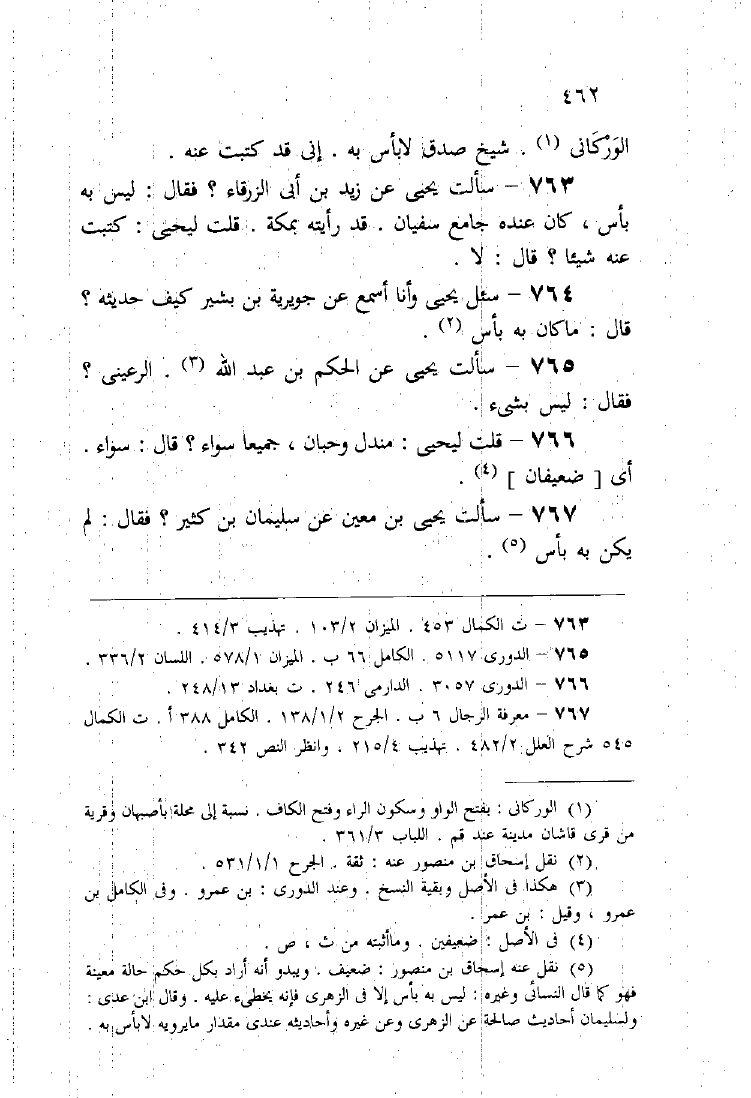 ٤٦٢
الوَرْكَانى (١) . شيخ صدق لابأس به . إنى قد كتبت عنه .
٧٦٣ – سألت يحيى عن زيد بن أبى الزرقاء ؟ فقال : ليس به
بأس ، كان عنده جامع سفيان . قد رأيته بمكة . قلت ليحيى : كتبت
عنه شيئا ؟ قال : لا .
٧٦٤ – سئل يحيى وأنا أسمع عن جويرية بن بشير كيف حديثه ؟
قال : ماكان به بأس (٢) .
٧٦٥ – سألت يحيى عن الحكم بن عبد الله (٣) . الرعينى ؟
فقال : ليس بشىء .
٧٦٦ – قلت ليحيى : مندل وحبان ، جميعا سواء ؟ قال : سواء .
أى [ ضعيفان ] (٤) .
٧٦٧ – سألت يحيى بن معين عن سليمان بن كثير ؟ فقال : لم
يكن به بأس (٥) .
٧٦٣ – ت الكمال ٤٥٣ . الميزان ١٠٣/٢ . تهذيب ٤١٤/٣ .
٧٦٥ – الدورى ٥١١٧ . الكامل ٦٦ ب . الميزان ٥٧٨/١ . اللسان ٣٣٦/٢ .
٧٦٦ – الدورى ٣٠٥٧ . الدارمى ٢٤٦ . ت بغداد ٢٤٨/١٣ .
٧٦٧ – معرفة الرجال ٦ ب . الجرح ١٣٨/١/٢ . الكامل ٣٨٨ أ . ت الكمال
٥٤٥ شرح العلل ٤٨٢/٢ . تهذيب ٢١٥/٤ . وانظر النص ٣٤٢ .
(١) الوركانى : بفتح الواو وسكون الراء وفتح الكاف . نسبة إلى محلة بأصبهان وقرية
من قرى قاشان مدينة عند قم . اللباب ٣٦١/٣ .
(٢) نقل إسحاق بن منصور عنه : ثقة . الجرح ٥٣١/١/١ .
(٣) هكذا فى الأصل وبقية النسخ . وعند الدورى : بن عمرو . وفى الكامل بن
عمرو ، وقيل : بن عمر .
(٤) فى الأصل : ضعيفين . وماأثبته من ث ، ص .
(٥) نقل عنه إسحاق بن منصور : ضعيف . ويبدو أنه أراد بكل حكم حالة معينة
فهو كما قال النسائى وغيره : ليس به بأس إلا فى الزهرى فإنه يخطىء عليه . وقال ابن عدى :
ولسليمان أحاديث صالحة عن الزهرى وعن غيره وأحاديثه عندى مقدار مايرويه لابأس به .